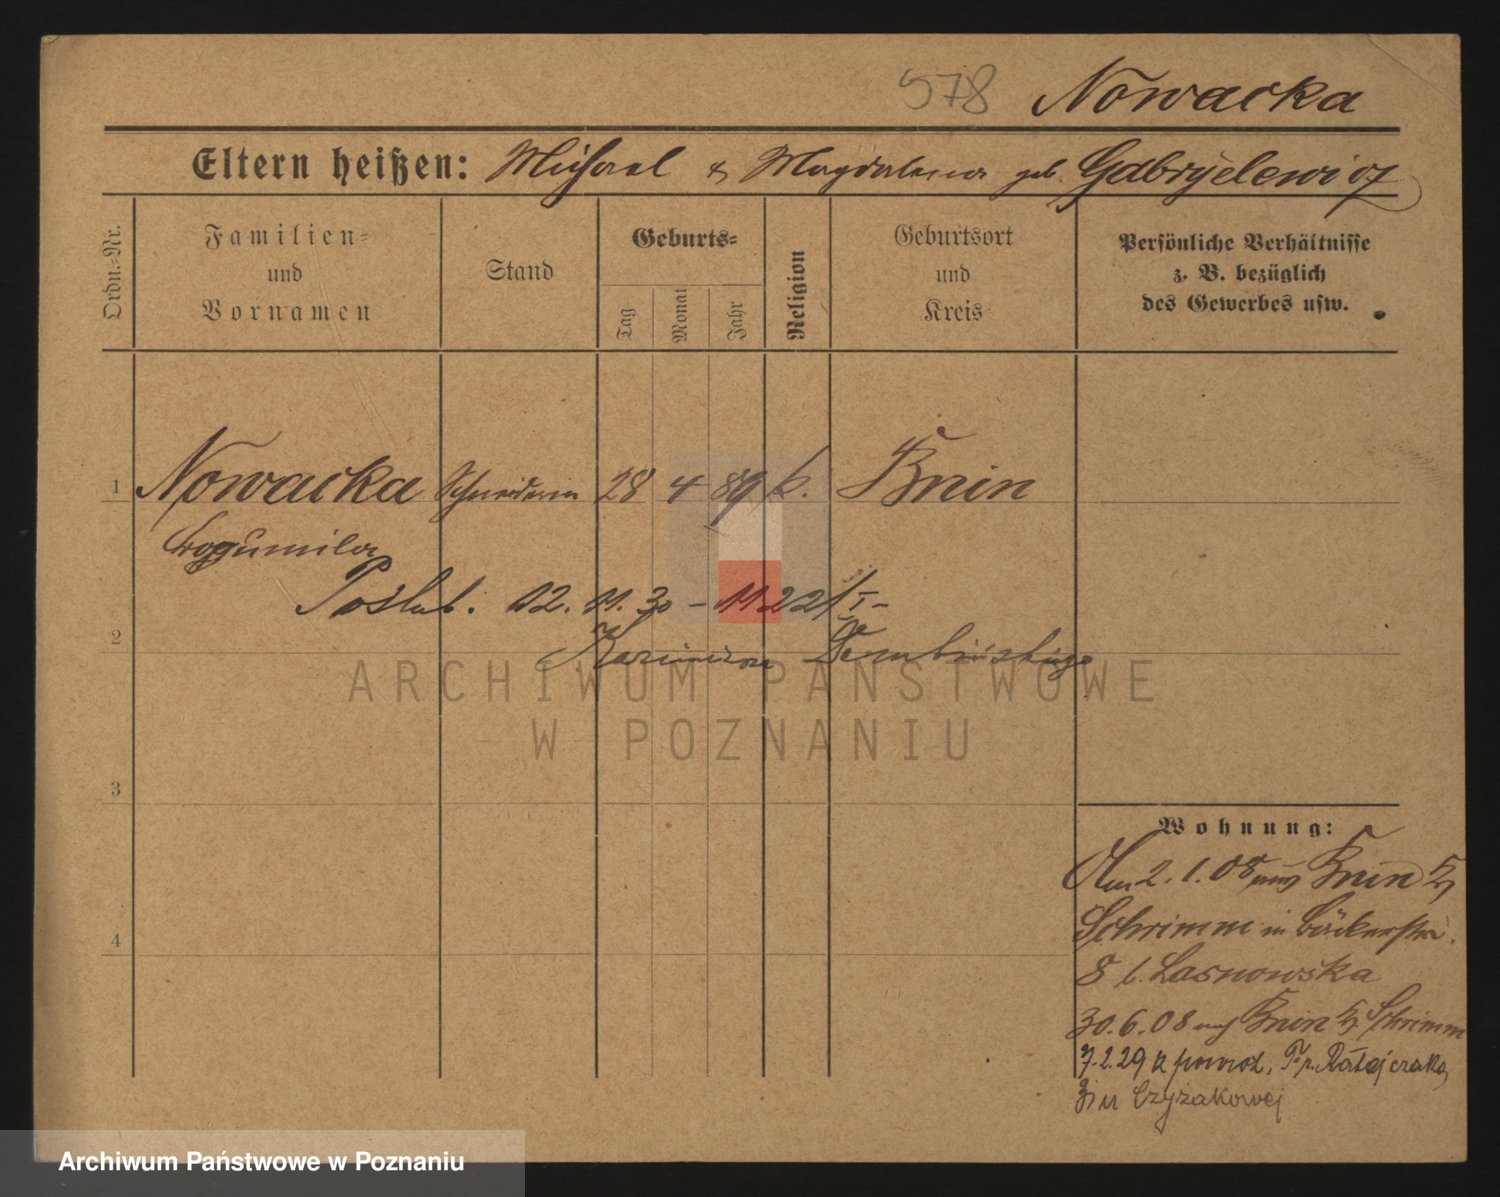 578 Nowacka
Eltern heißen: Michael & Magdalena geb. Gabryelewicz
Ordn.-Nr.
Familien-
und
Vornamen
Stand
Geburts-
Tag
Monat
Jahr
Religion
Geburtsort
und
Kreis
Persönliche Verhältnisse
z. B. bezüglich
des Gewerbes usw.
1 Nowacka Schneiderin 28 4 89 k. Bnin
Bogumila
Poślub. 12. 11. 30 - 1122/I-
2
Kazimierza Dembińskiego
ARCHIWUM PAŃSTWOWE
W POZNANIU
3
Wohnung:
Am 2. 1. 08 aus Bnin Kr
Schrimm in Bäckerstr.
4
8 b. Lasnowska
30. 6. 08 nach Bnin Kr Schrimm
7.2.29 z powrot, Fr. Ratajczaka
3 u Czyżakowej
Archiwum Państwowe w Poznaniu